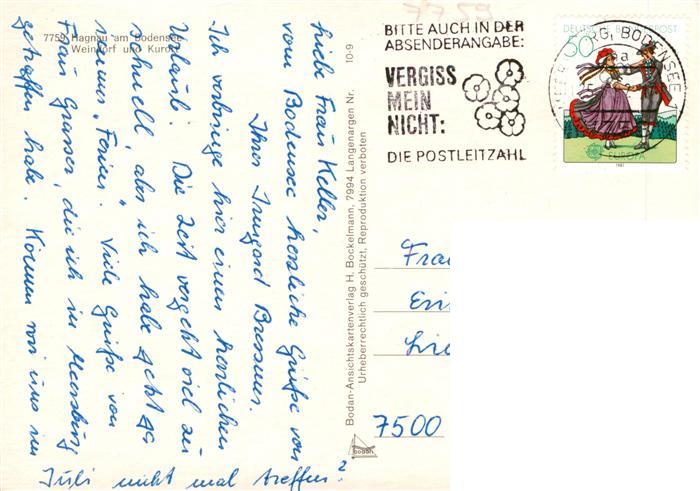 7759 Hagnau am Bodensee
Weindorf und Kurort
10-9
7759
BITTE AUCH IN DER
ABSENDERANGABE:
VERGISS
MEIN
NICHT:
DIE POSTLEITZAHL
DEUTSCHE BUNDESPOST
50
EUROPA
1981
MEERSBURG, BODENSEE
Liebe Frau Keller,
vom Bodensee herzliche Grüße von
Ihrer Irmgard
Ich verbringe hier einen herrlichen
Urlaub. Die Zeit vergeht viel zu
schnell, aber ich habe jetzt ja
"Ferien". Viele Grüße von
Frau Grasser, die ich in Meersburg
getroffen habe. Können wir uns im
Juli nicht mal treffen?
Bodan-Ansichtskartenverlag H. Bockelmann, 7994 Langenargen Nr.
Urheberrechtlich geschützt, Reproduktion verboten
bodan
Frau
7500